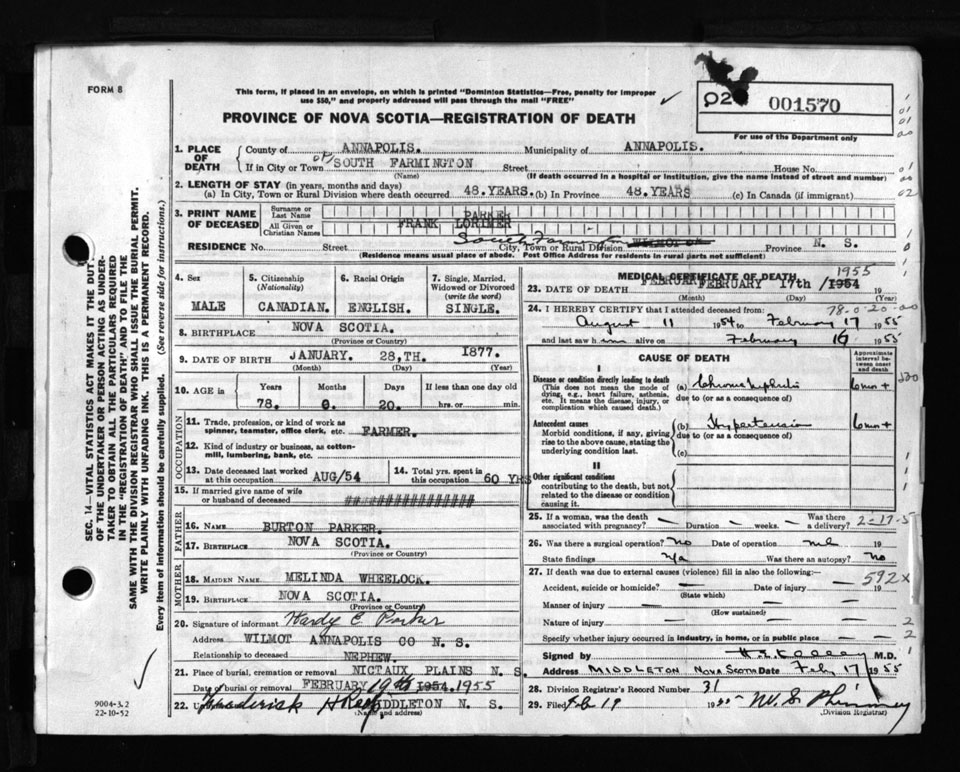 FORM 8
This form, if placed in an envelope, on which is printed "Dominion Statistics—Free, penalty for improper
use $50," and properly addressed will pass through the mail "FREE"
001570
For use of the Department only
PROVINCE OF NOVA SCOTIA—REGISTRATION OF DEATH
1. PLACE OF DEATH
County of ANNAPOLIS. Municipality of ANNAPOLIS.
If in City or Town SOUTH FARMINGTON Street House No.
(Name) (If death occurred in a hospital or institution, give the name instead of street and number)
2. LENGTH OF STAY (in years, months and days)
(a) In City, Town or Rural Division where death occurred 48.YEARS. (b) In Province 48.YEARS (c) In Canada (if immigrant)
3. PRINT NAME OF DECEASED
Surname or Last Name PARKER
All Given or Christian Names FRANK LORIMER
RESIDENCE No. Street South Farmington City, Town or Rural Division Province N. S.
(Residence means usual place of abode. Post Office Address for residents in rural parts not sufficient)
4. Sex
MALE
5. Citizenship (Nationality)
CANADIAN.
6. Racial Origin
ENGLISH.
7. Single, Married, Widowed or Divorced (write the word)
SINGLE.
8. BIRTHPLACE NOVA SCOTIA.
(Province or County)
9. DATE OF BIRTH JANUARY. 28,TH. 1877.
(Month) (Day) (Year)
10. AGE in Years Months Days If less than one day old
78. 0. 20. hrs. or min.
OCCUPATION
11. Trade, profession, or kind of work as
spinner, teamster, office clerk, etc. FARMER.
12. Kind of industry or business, as cotton-
mill, lumbering, bank, etc.
13. Date deceased last worked
at this occupation AUG/54
14. Total yrs. spent in
this occupation 60 YRS
15. If married give name of wife
or husband of deceased ################
FATHER
16. NAME BURTON PARKER.
17. BIRTHPLACE NOVA SCOTIA.
(Province or Country)
MOTHER
18. MAIDEN NAME MELINDA WHEELOCK.
19. BIRTHPLACE NOVA SCOTIA.
(Province or Country)
20. Signature of informant Hardy E Parker
Address WILMOT ANNAPOLIS CO N. S.
Relationship to deceased NEPHEW.
21. Place of burial, cremation or removal NICTAUX PLAINS N. S.
Date of burial or removal FEBRUARY 19th 1954. 1955
22. MIDDLETON N. S.
(Name and address)
MEDICAL CERTIFICATE OF DEATH
23. DATE OF DEATH FEBRUARY 17th/ 1954 1955
(Month) (Day) (Year)
24. I HEREBY CERTIFY that I attended deceased from: 78-0-20
August 11 1954 to February 17 1955
and last saw him alive on February 16 1955
CAUSE OF DEATH
Approximate interval between onset and death
I
Disease or condition directly leading to death
(This does not mean the mode of
dying, e.g., heart failure, asthenia,
etc. It means the disease, injury, or
complication which caused death.)
(a) Chronic Nephritis 6 mon +
due to (or as a consequence of)
Antecedent causes
Morbid conditions, if any, giving
rise to the above cause, stating the
underlying condition last.
(b) Hypertension 6 mon +
due to (or as a consequence of)
(c)
II
Other significant conditions
contributing to the death, but not
related to the disease or condition
causing it.
25. If a woman, was the death
associated with pregnancy? — Duration — weeks. — Was there
a delivery?
26. Was there a surgical operation? No Date of operation 19
State findings Was there an autopsy? No
27. If death was due to external causes (violence) fill in also the following:—
592 x
Accident, suicide or homicide? — Date of injury — 19
(State which)
Manner of injury —
(How sustained)
Nature of injury — 2
Specify whether injury occurred in industry, in home, or in public place — 2
Signed by M.D.
Address MIDDLETON NOVA SCOTIA Date Feb 17 1955
28. Division Registrar's Record Number 31
29. Filed Feb 19 1955
(Division Registrar)
SEC. 14.—VITAL STATISTICS ACT MAKES IT THE DUTY
OF THE UNDERTAKER OR PERSON ACTING AS UNDER-
TAKER TO OBTAIN ALL THE PARTICULARS REQUIRED
IN THE "REGISTRATION OF DEATH" AND TO FILE THE
SAME WITH THE DIVISION REGISTRAR WHO SHALL ISSUE THE BURIAL PERMIT.
WRITE PLAINLY WITH UNFADING INK. THIS IS A PERMANENT RECORD.
Every item of information should be carefully supplied. (See reverse side for instructions.)
9004-3.2
22-10-52